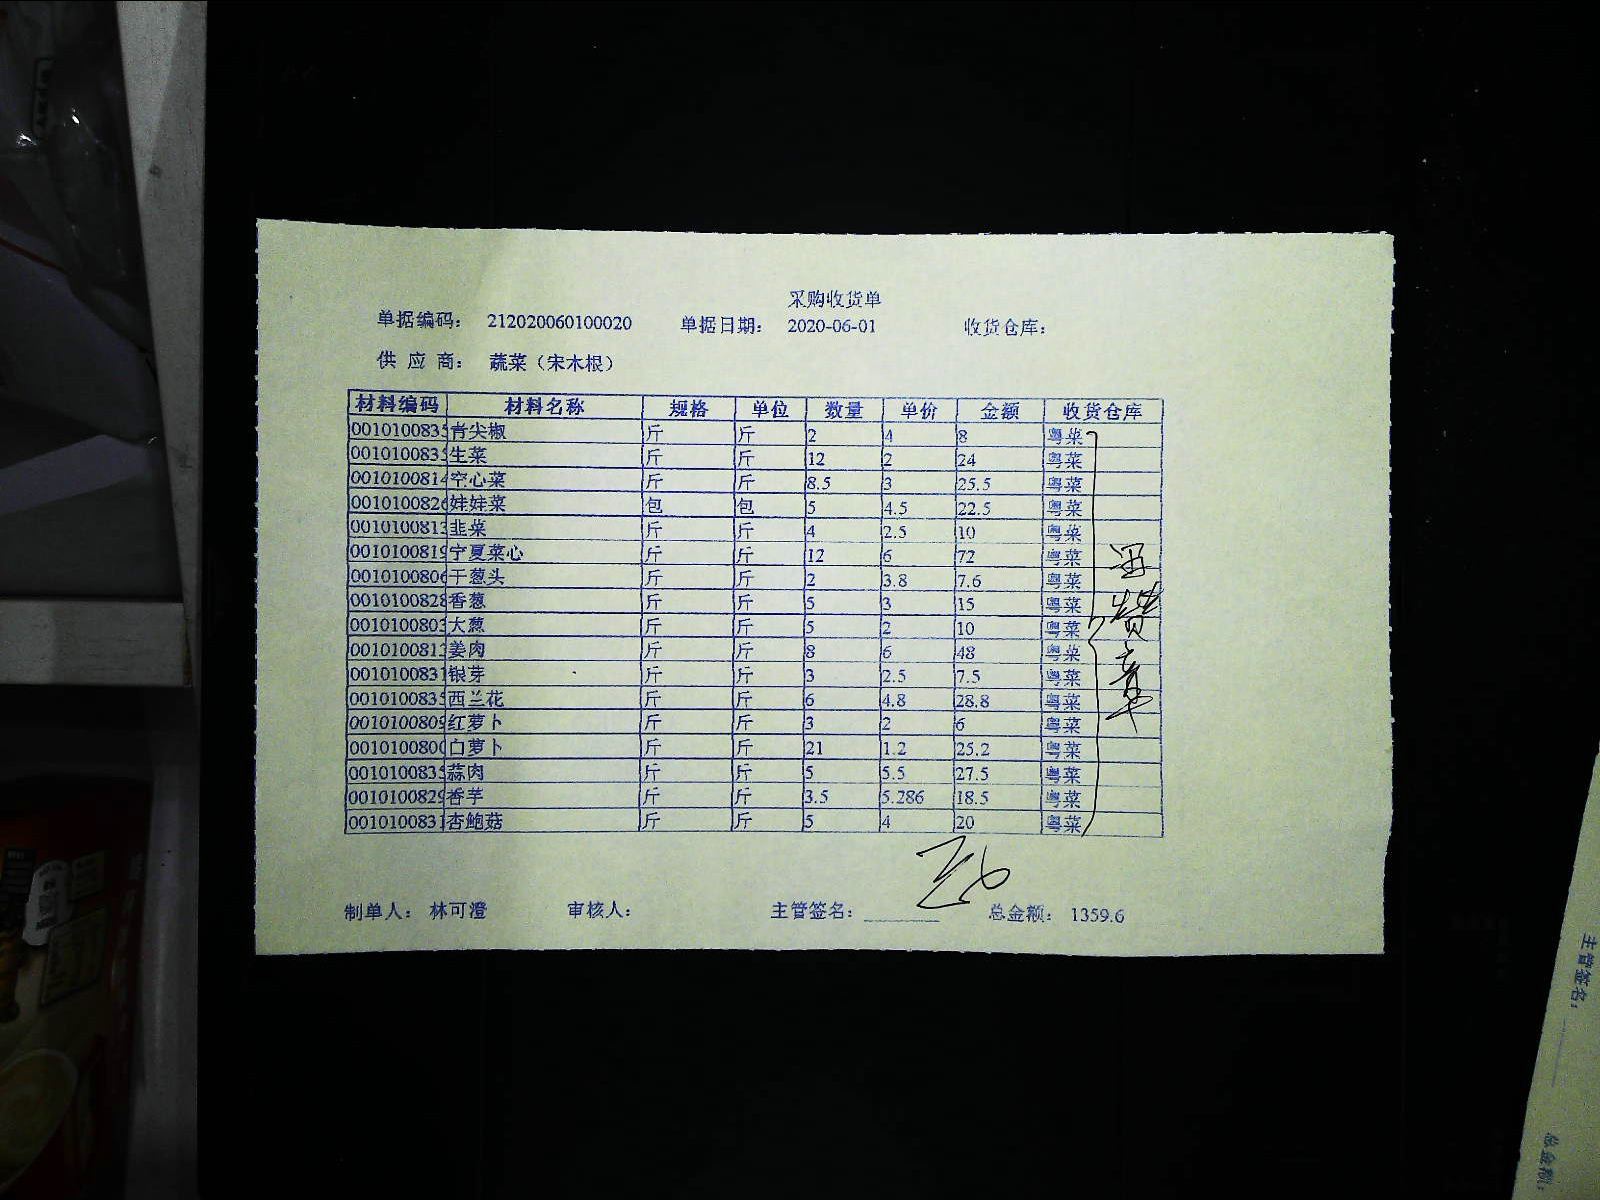 采购收货单
单据编码： 212020060100020 单据日期： 2020-06-01 收货仓库：
供 应 商： 蔬菜（宋木根）
材料编码 材料名称 规格 单位 数量 单价 金额 收货仓库
001010083 青尖椒 斤 斤 2 4 8 粤菜
001010083 生菜 斤 斤 12 2 24 粤菜
001010081 空心菜 斤 斤 8.5 3 25.5 粤菜
001010082 娃娃菜 包 包 5 4.5 22.5 粤菜
001010081 韭菜 斤 斤 4 2.5 10 粤菜
001010081 宁夏菜心 斤 斤 12 6 72 粤菜
001010080 干葱头 斤 斤 2 3.8 7.6 粤菜
001010082 香葱 斤 斤 5 3 15 粤菜
001010080 大葱 斤 斤 5 2 10 粤菜
001010081 姜肉 斤 斤 8 6 48 粤菜
001010083 银芽 斤 斤 3 2.5 7.5 粤菜
001010083 西兰花 斤 斤 6 4.8 28.8 粤菜
001010080 红萝卜 斤 斤 3 2 6 粤菜
001010080 白萝卜 斤 斤 21 1.2 25.2 粤菜
001010083 蒜肉 斤 斤 5 5.5 27.5 粤菜
001010082 香芋 斤 斤 3.5 5.286 18.5 粤菜
001010083 杏鲍菇 斤 斤 5 4 20 粤菜
制单人： 林可澄 审核人： 主管签名： 总金额： 1359.6
主管签名：
总金额：